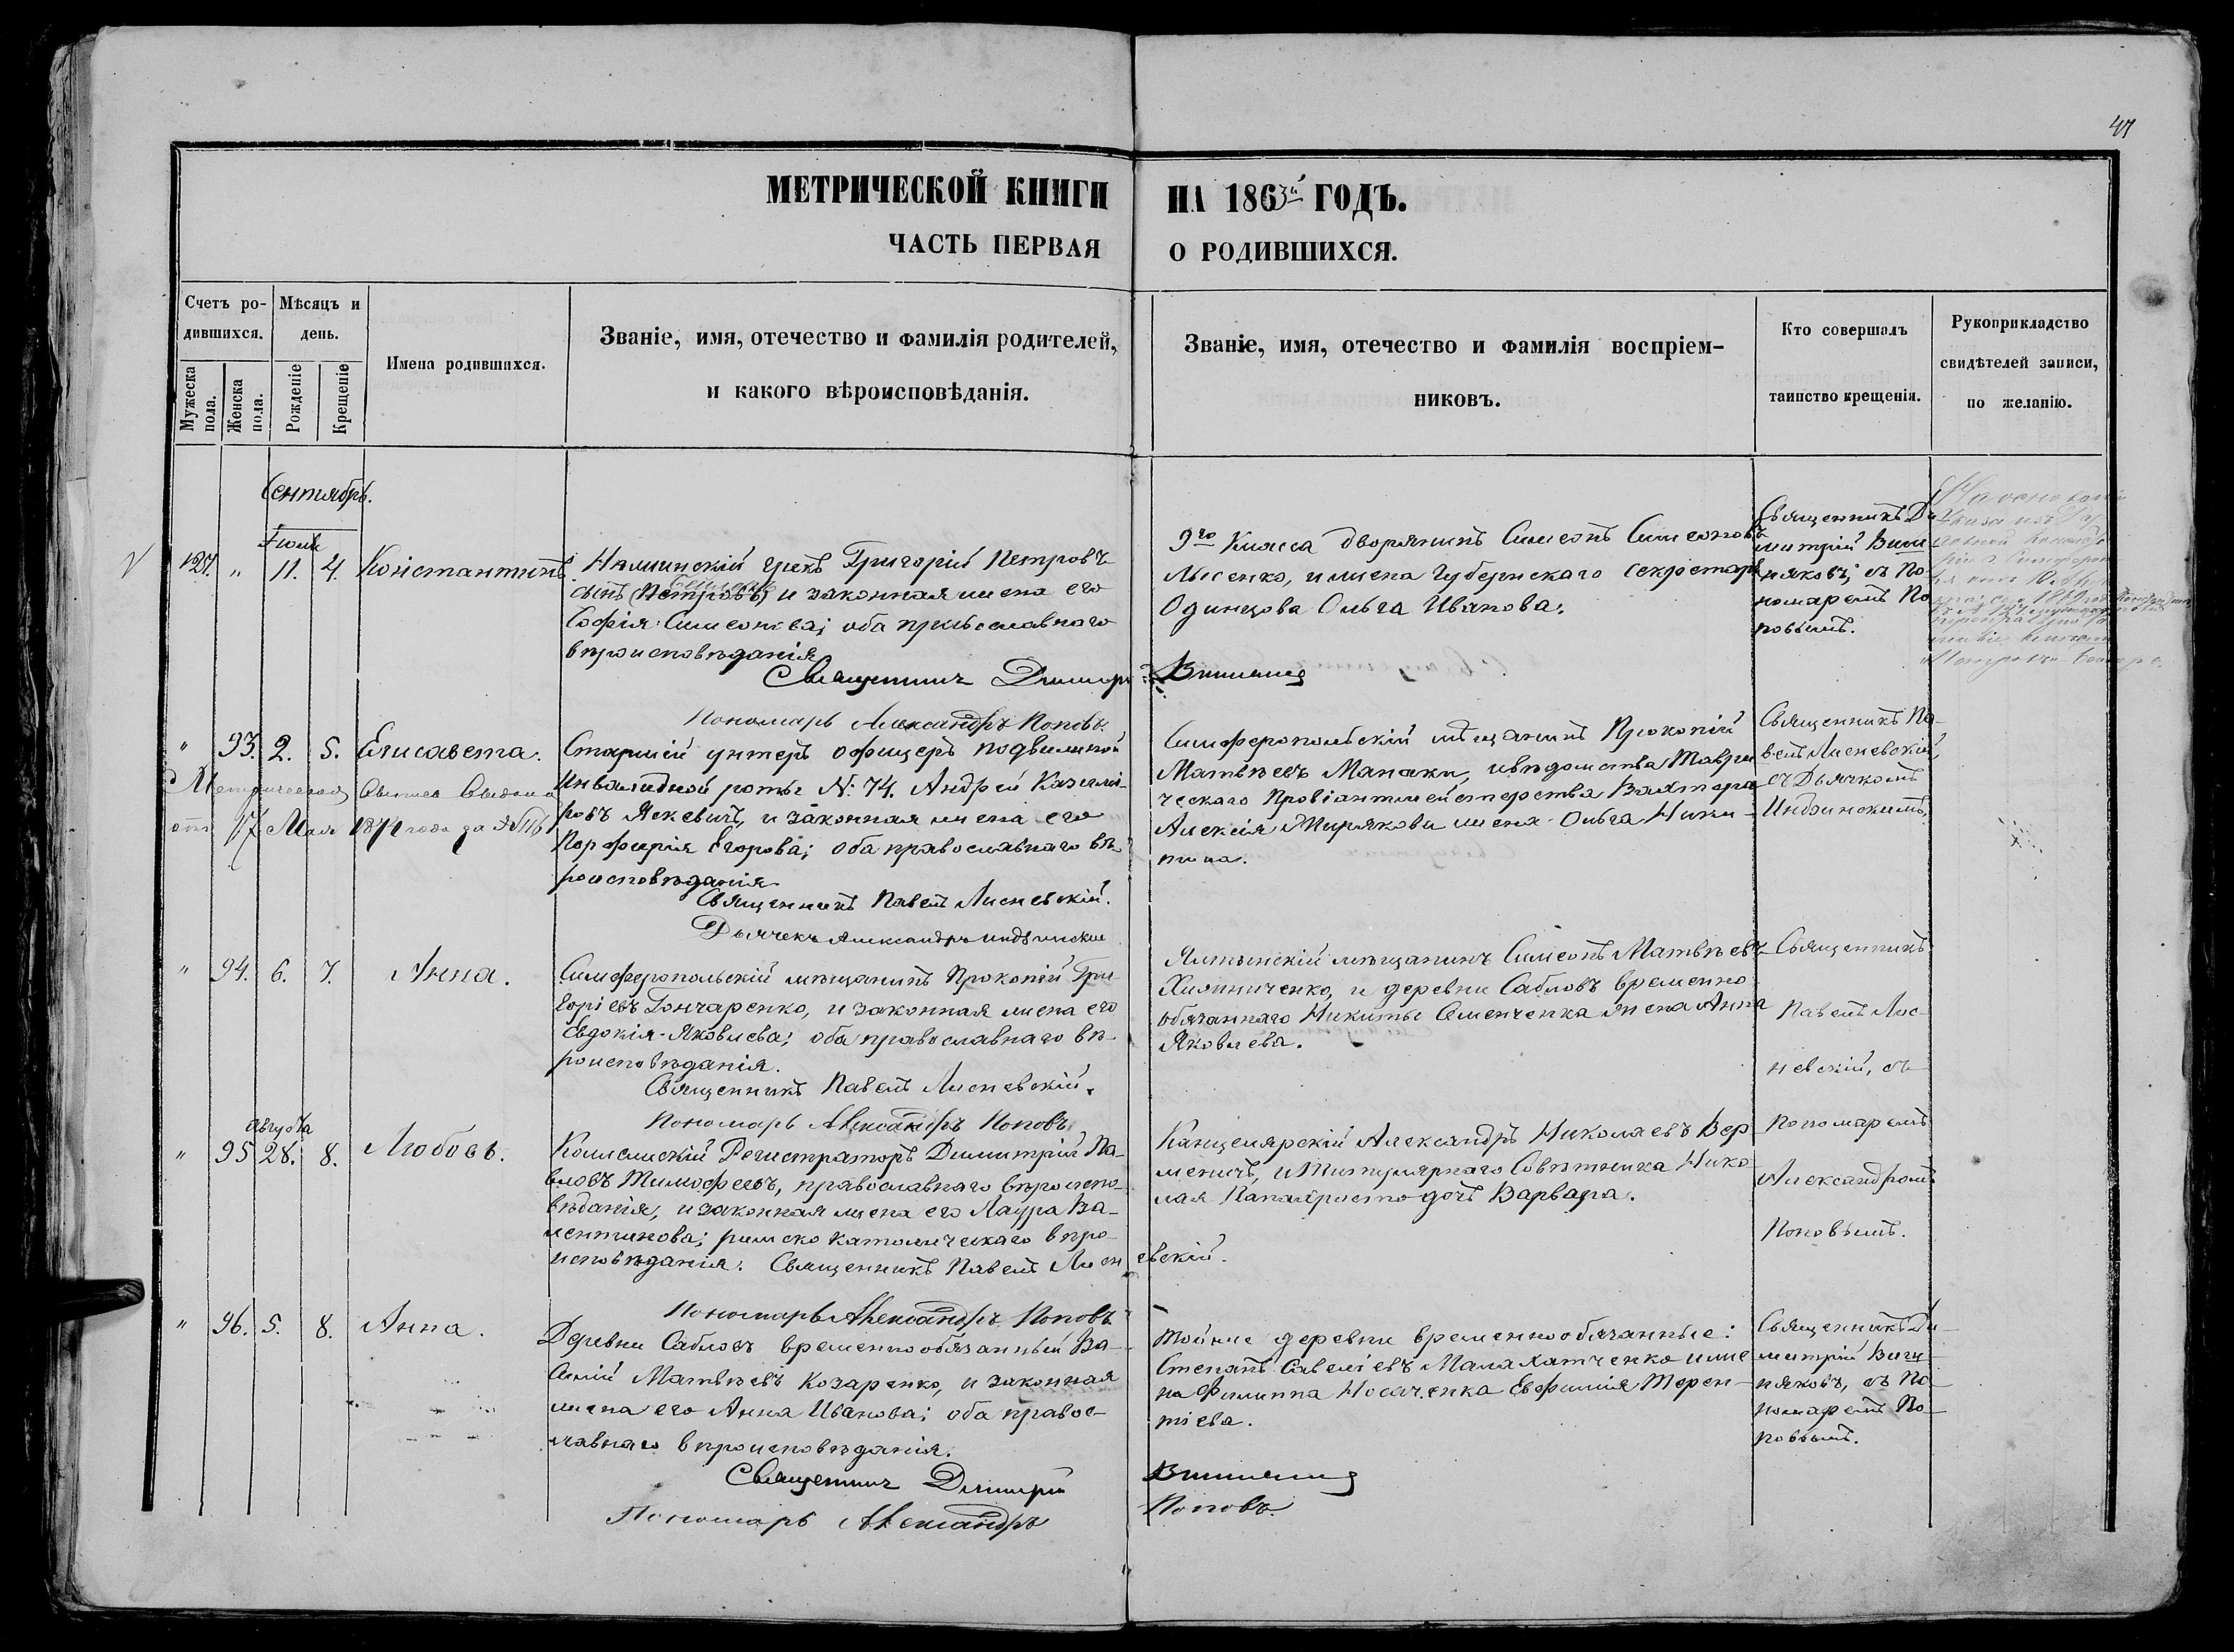 47
МЕТРИЧЕСКОЙ КНИГИ НА 1863й ГОДЪ.
ЧАСТЬ ПЕРВАЯ О РОДИВШИХСЯ.
Счетъ ро-
дившихся.
Мужеска пола.
Женска пола.
Мѣсяцъ и
день.
Рожденіе
Крещеніе
Имена родившихся.
Званіе, имя, отечество и фамилія родителей,
и какого вѣроисповѣданія.
Званіе, имя, отечество и фамилія воспріем-
никовъ.
Кто совершалъ
таинство крещенія.
Рукоприкладство
свидѣтелей записи,
по желанію.
Сентябрь.
Іюля
" 11. 4. Константинъ.
грекъ Григорій Петровъ
сынъ (Петровъ) и законная жена его
Софія Симеонова; оба православнаго
вѣроисповѣданія
Священникъ Димитрій
Пономарь Александръ Поповъ.
9го Класса дворянинъ Симеонъ Симеоновъ
Лысенко, и жена Губернскаго Секретаря
Одинцова Ольга Иванова.
Священникъ Ди-
митрій
няковъ, съ По-
номаремъ По-
повымъ.
" 93. 2. 5. Елисавета.
Старшій унтеръ офицеръ подвижной
Инвалидной роты №. 74. Андрей Казимі-
ровъ Яскевичъ, и законная жена его
Порфирія Егорова; оба православнаго вѣ-
роисповѣданія
Священникъ Павелъ Лисневскій.
Дьячекъ Александръ
от 17 Мая 1871 года за №
Симферопольскій мѣщанинъ Прокопій
Матвѣевъ Манаки, и вѣдомства Таври-
ческаго Провіантмейстерства Вахтера
Алексія Мирякова жена Ольга Ники-
тина.
Священникъ Па-
велъ Лисневскій,
съ Дьячкомъ
" 94. 6. 7. Анна.
Симферопольскій мѣщанинъ Прокопій Гри-
горіевъ Гончаренко, и законная жена его
Евдокія Яковлева; оба православнаго вѣ-
роисповѣданія.
Священникъ Павелъ Лисневскій.
Пономарь Александръ Поповъ
Ялтинскій мѣщанинъ Симеонъ Матвѣевъ
Химниченко, и деревни Сабловъ временно
обязаннаго Никиты Семенченка жена Анна
Яковлева.
Священникъ
Павелъ Лис-
невскій, съ
Пономаремъ
Александромъ
Поповымъ.
Августа
" 95 28. 8. Любовь.
Коллежскій Регистраторъ Димитрій Па-
вловъ Тимофеевъ, православнаго вѣроиспо-
вѣданія, и законная жена его Лаура Ва-
лентинова; римско католическаго вѣро-
исповѣданія. Священникъ Павелъ Лисневскій.
Пономарь Александръ Поповъ
Канцелярскій Александръ Николаевъ Вер-
меничъ, и Титулярнаго Совѣтника Нико-
лая дочь Варвара.
" 96. 5. 8. Анна.
Деревни Сабловъ временнообязанный Ва-
силій Матвѣевъ Козаренко, и законная
жена его Анна Иванова; оба правос-
лавнаго вѣроисповѣданія.
Священникъ Димитрій
Пономарь Александръ Поповъ.
Тойже деревни временнообязанные:
Степанъ Савеліевъ Малахатченко и же-
на Филиппа Носаченка Евфимія Терен-
тіева.
Священникъ Ди-
митрій
няковъ, съ По-
номаремъ По-
повымъ.